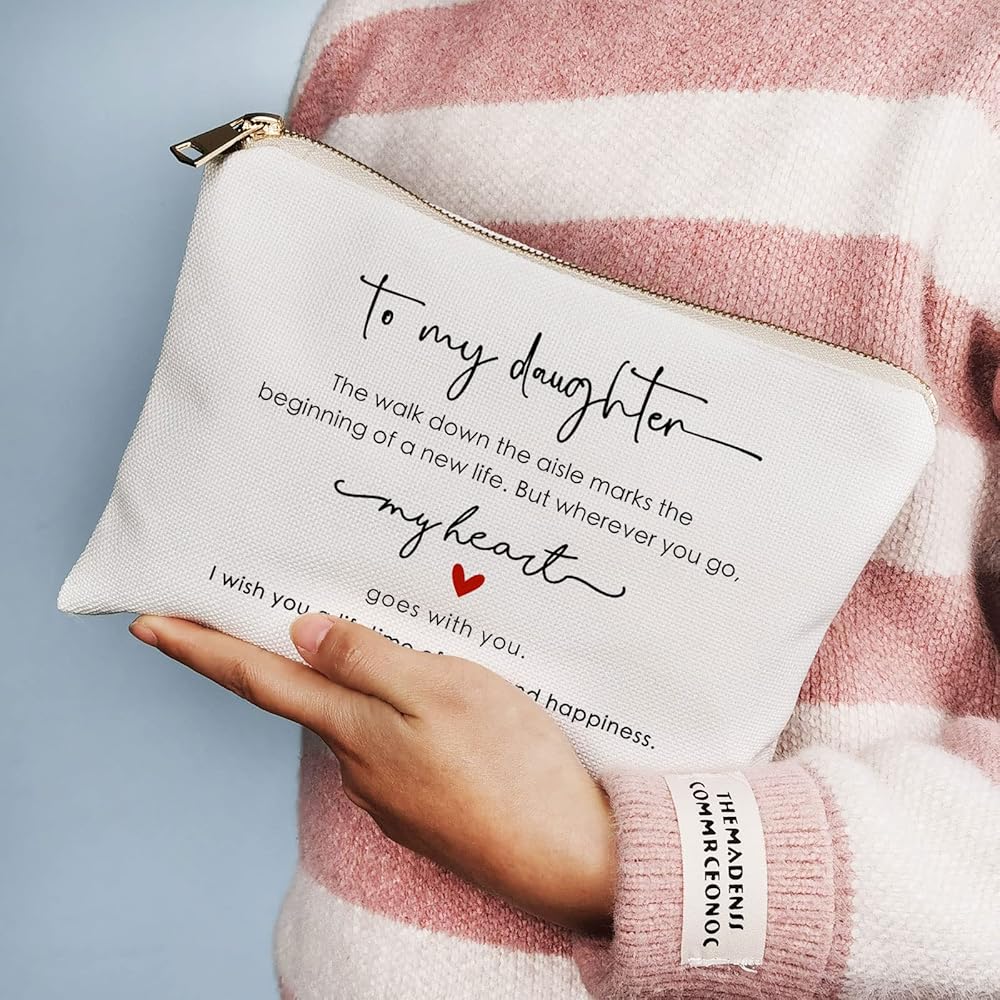 to my daughter
The walk down the aisle marks the
beginning of a new life. But wherever you go,
my heart
goes with you.
I wish you a life time of and happiness.
THEMADENSS
COMMRCEONOC